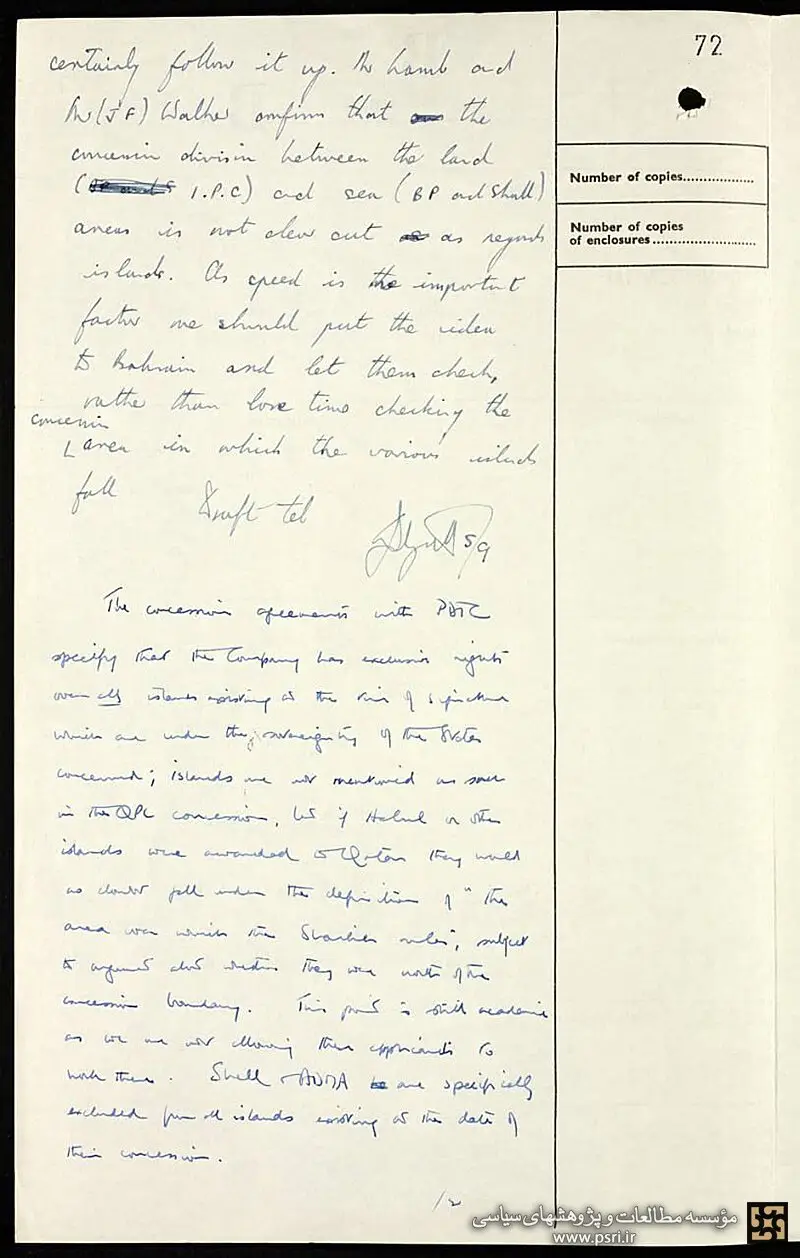 72
Number of copies..................
Number of copies
of enclosures..........................
certainly follow it up. Mr Lamb and
Mr (J F) Walker confirm that the
concession division between the land
( I.P.C) and sea (BP and Shell)
areas is not clear cut as regards
islands. As speed is the important
factor we should put the idea
to Bahrain and let them check,
rather than lose time checking the
concession
area in which the various islands
fall
Draft tel
5/9
The concession agreements with PDTC
specify that the Company has exclusive rights
over all islands existing at the time of signature
which are under the sovereignty of the States
concerned; islands are not mentioned as such
in the QPC concession, but if Halul or other
islands were awarded to Qatar they would
no doubt fall under the definition of "the
area over which the Shaikh rules", subject
to argument about whether they were north of the
concession boundary. This point is still academic
as we are not allowing these applicants to
work there. Shell + ADMA are specifically
excluded from all islands existing at the date of
their concession.
/2
مؤسسه مطالعات و پژوهشهای سیاسی
www.psri.ir